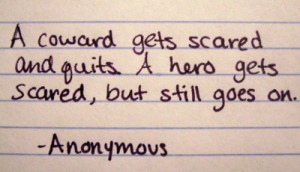 A coward gets scared
and quits. A hero gets
scared, but still goes on.
-Anonymous